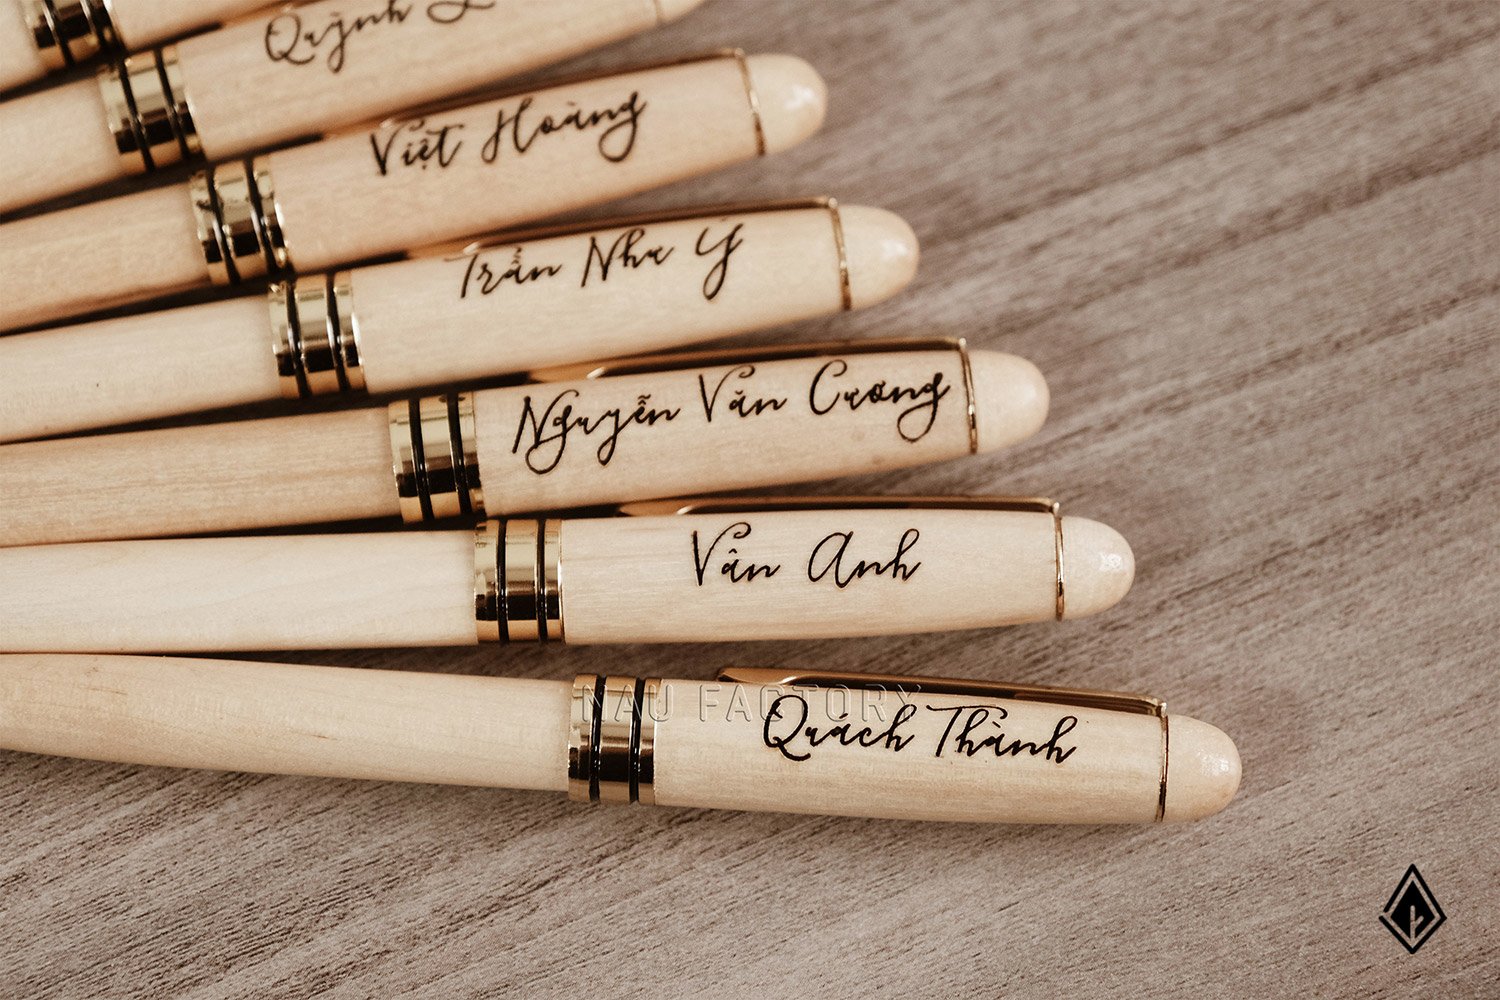 Quỳnh
Việt Hoàng
Trần Như Ý
Nguyễn Văn Cương
Vân Anh
NAU FACTORY
Quách Thành